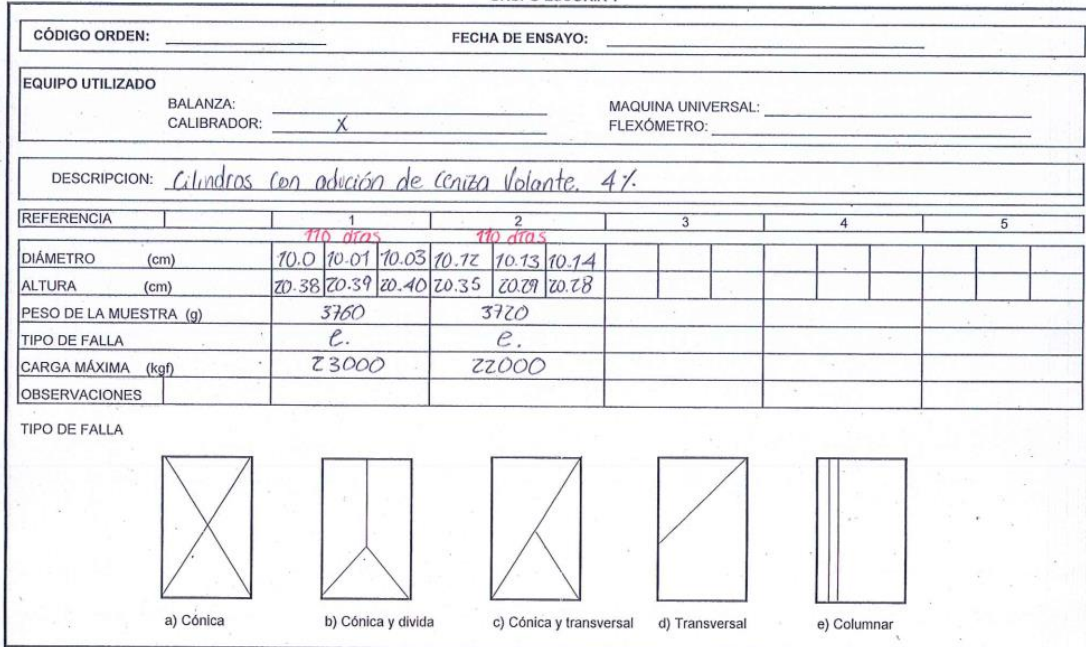 CÓDIGO ORDEN: FECHA DE ENSAYO:
EQUIPO UTILIZADO
BALANZA: MAQUINA UNIVERSAL:
CALIBRADOR: X FLEXÓMETRO:
DESCRIPCION: Cilindros con adición de ceniza volante. 4%.
REFERENCIA 1 2 3 4 5
110 días 110 días
DIÁMETRO (cm) 10.0 10.01 10.03 10.12 10.13 10.14
ALTURA (cm) 20.38 20.39 20.40 20.35 20.29 20.28
PESO DE LA MUESTRA (g) 3760 3720
TIPO DE FALLA e. e.
CARGA MÁXIMA (kgf) 23000 22000
OBSERVACIONES
TIPO DE FALLA
a) Cónica b) Cónica y divida c) Cónica y transversal d) Transversal e) Columnar